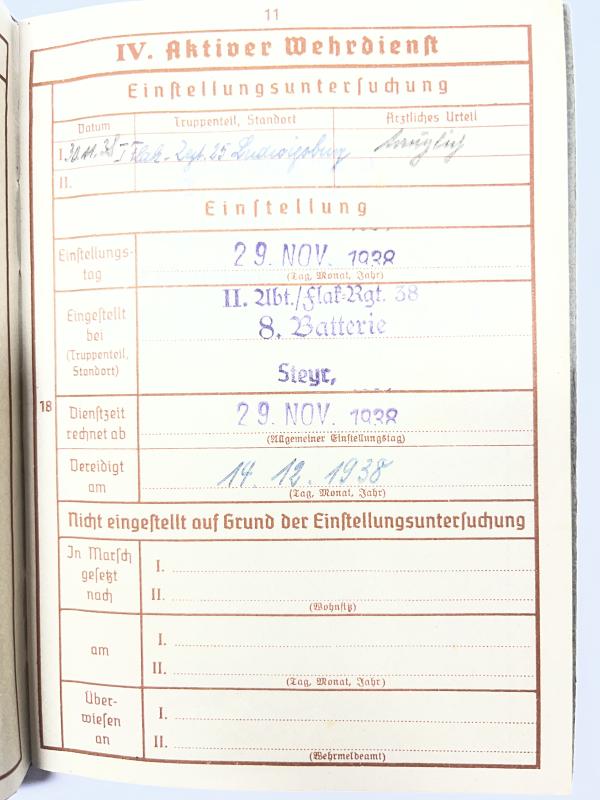 11
IV. Aktiver Wehrdienst
Einstellungsuntersuchung
Datum Truppenteil, Standort Ärztliches Urteil
I. 30.11.38 I Flak-Rgt. 25 Ludwigsburg tauglich
II.
Einstellung
Einstellungs-
tag
29. NOV. 1938
(Tag, Monat, Jahr)
Eingestellt
bei
(Truppenteil,
Standort)
II. Abt./Flak-Rgt. 38
8. Batterie
Steyr,
18
Dienstzeit
rechnet ab
29. NOV. 1938
(Allgemeiner Einstellungstag)
Vereidigt
am
14. 12. 1938
(Tag, Monat, Jahr)
Nicht eingestellt auf Grund der Einstellungsuntersuchung
In Marsch
gesetzt
nach
I.
II.
(Wohnsitz)
am
I.
II.
(Tag, Monat, Jahr)
Über-
wiesen
an
I.
II.
(Wehrmeldeamt)